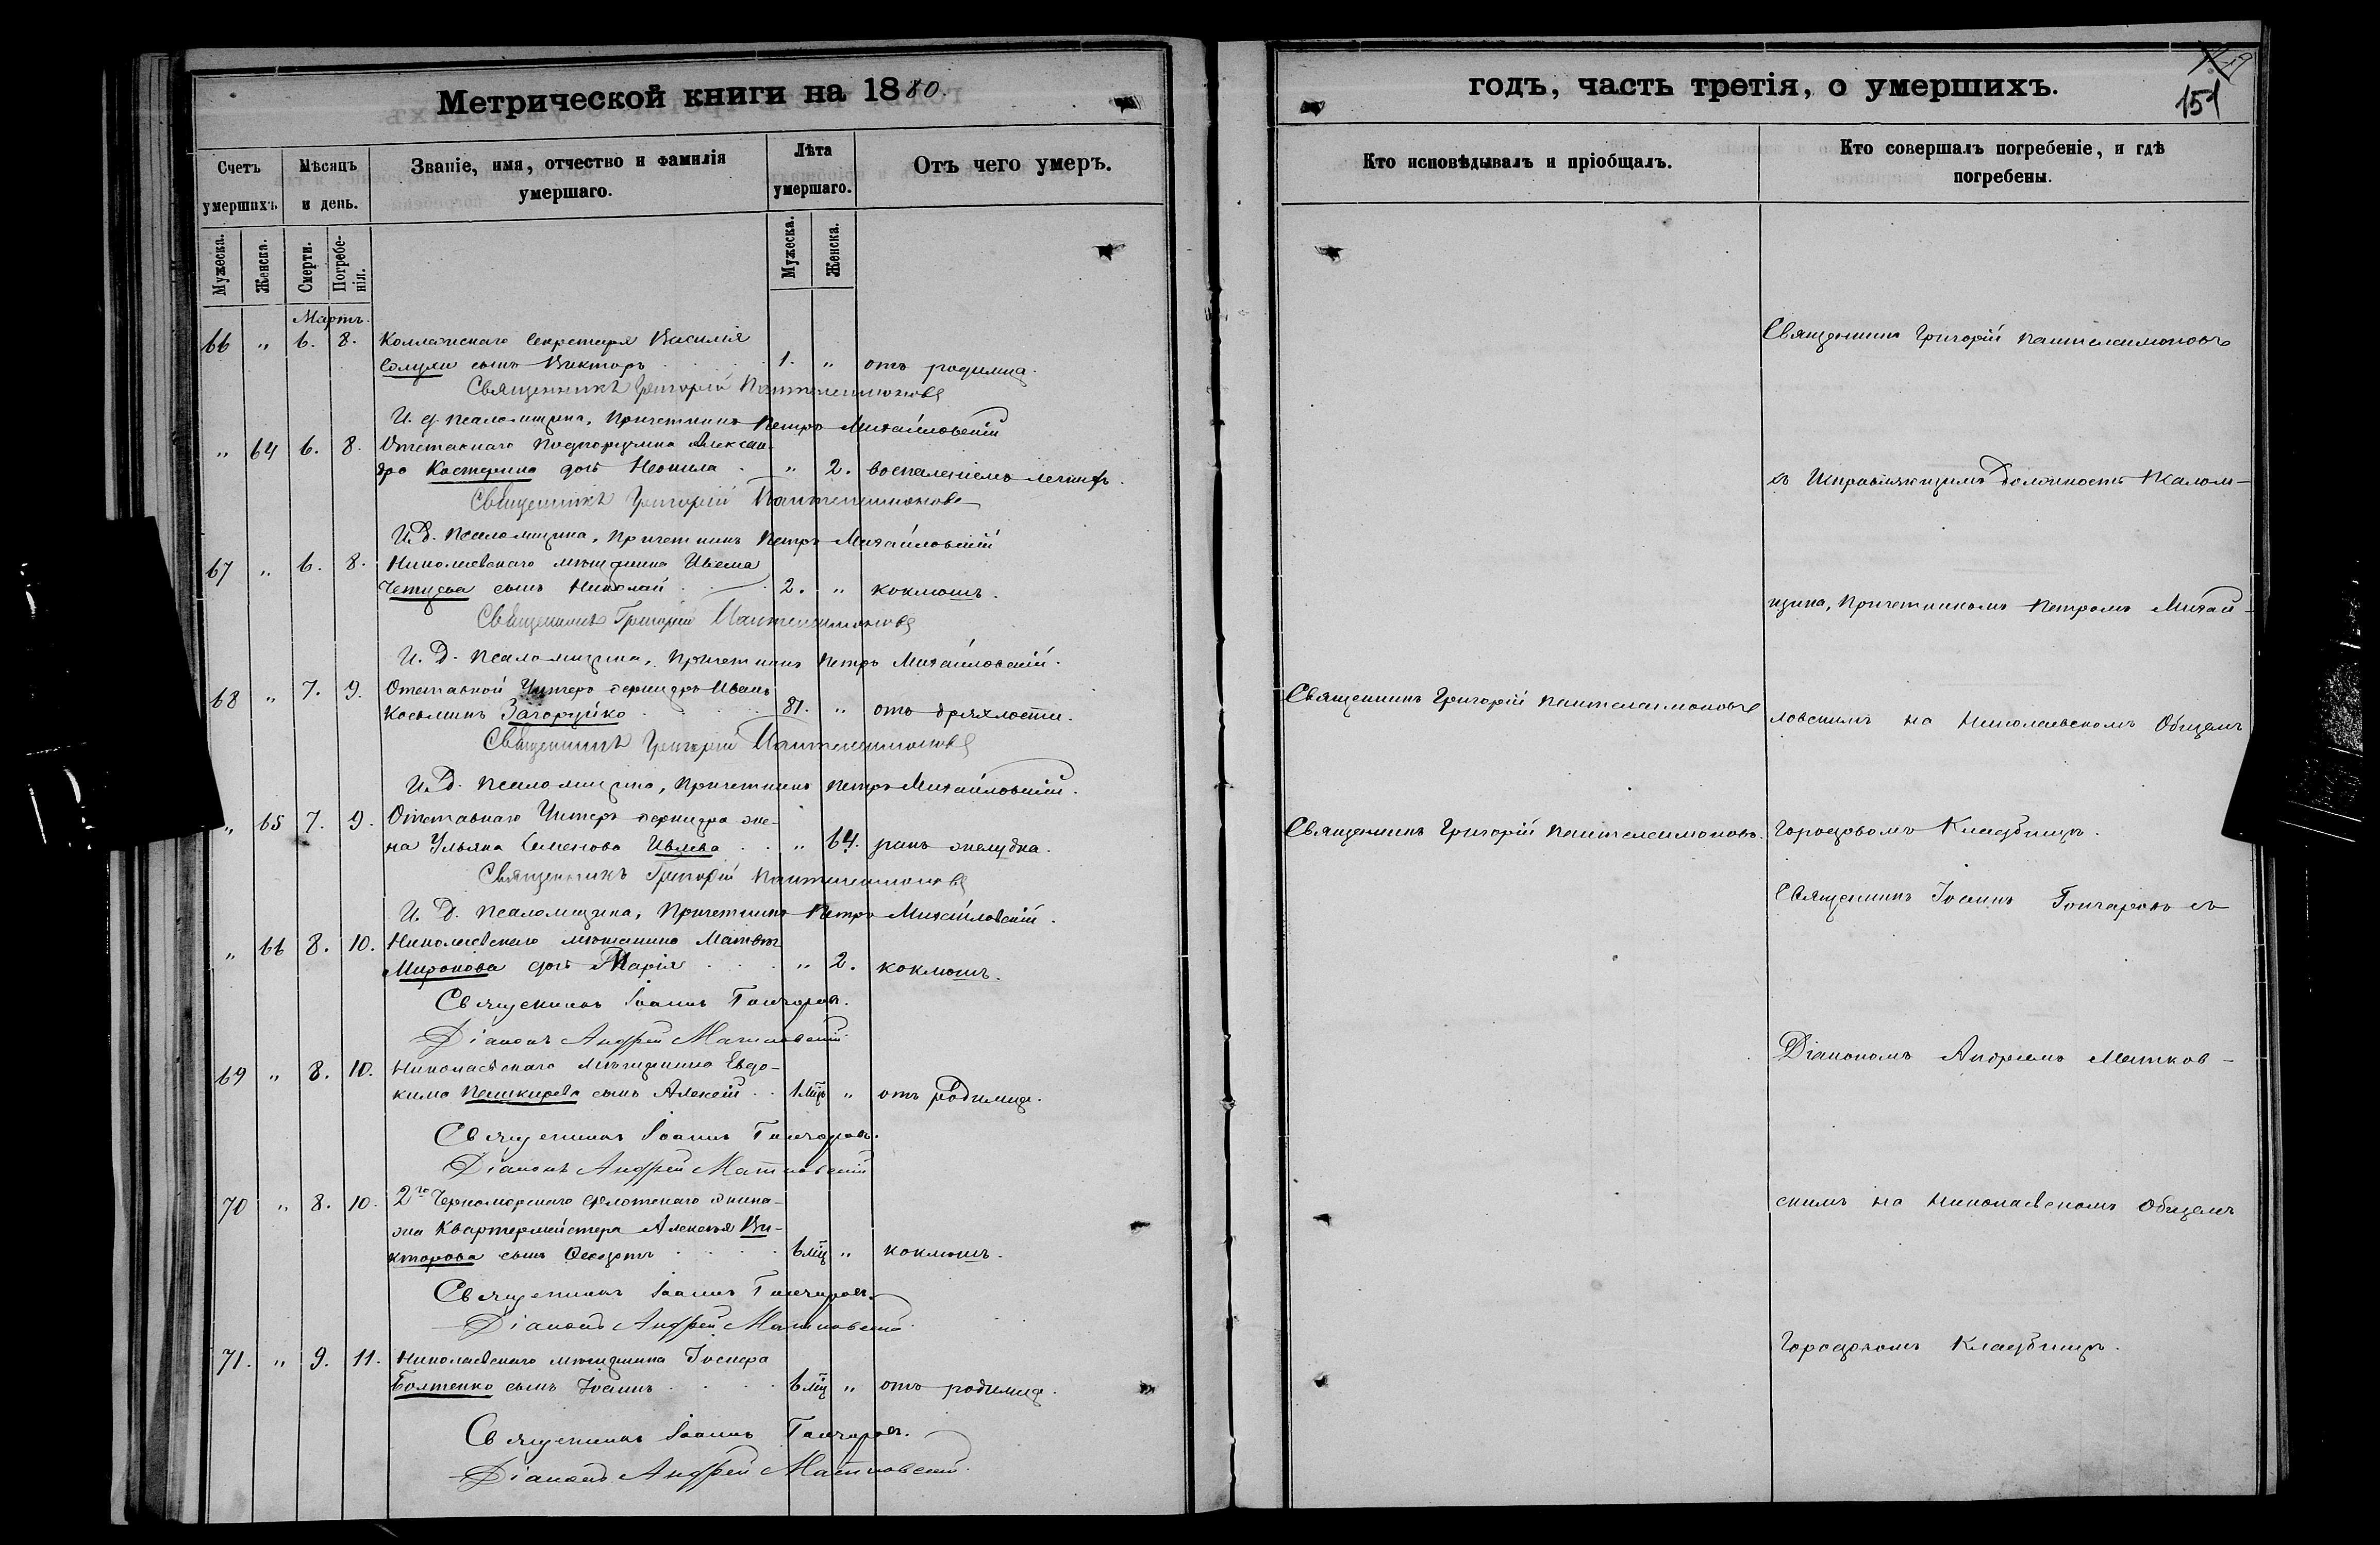 Метрической книги на 1880.
Счетъ умершихъ
Мѣсяцъ и день.
Званіе, имя, отчество и фамилія умершаго.
Лѣта умершаго.
Отъ чего умеръ.
Мужеска.
Женска.
Смерти.
Погребенія.
Мужеска.
Женска.
Мартъ.
66 " 6. 8. Коллежскаго Секретаря Василія
сынъ Викторъ 1. " отъ родимца.
Священникъ Григорій Пантелеимоновъ
И. д. Псаломщика, Причетникъ Петръ Михайловскій
" 64 6. 8. Отставнаго Подпоручика Алексан-
дра дочь Неонила " 2. воспаленіемъ легкихъ.
Священникъ Григорій Пантелеимоновъ
И. Д. Псаломщика, Причетникъ Петръ Михайловскій
67 " 6. 8. Николаевскаго мѣщанина
сынъ Николай 2. " коклюшъ.
Священникъ Григорій Пантелеимоновъ
И. Д. Псаломщика, Причетникъ Петръ Михайловскій.
68 " 7. 9. Отставной Унтеръ офицеръ Иванъ
Косьминъ Загоруйко 81. " отъ дряхлости.
Священникъ Григорій Пантелеимоновъ
И. Д. Псаломщика, Причетникъ Петръ Михайловскій.
" 65 7. 9. Отставнаго Унтеръ офицера же-
на Ульяна Семенова Ивлева " 64. ракъ желудка.
Священникъ Григорій Пантелеимоновъ
И. Д. Псаломщика, Причетникъ Петръ Михайловскій.
" 66 8. 10. Николаевскаго мѣщанина Матвѣя
Миронова дочь Марія " 2. коклюшъ.
Священникъ Іоаннъ Гончаровъ.
Діаконъ Андрей Матковскій
69 " 8. 10. Николаевскаго мѣщанина Евдо-
кима Пешкирева сынъ Алексѣй 1 мцъ " отъ родимца.
Священникъ Іоаннъ Гончаровъ.
Діаконъ Андрей Матковскій
70 " 8. 10. 2го Черноморскаго флотскаго экипа-
жа Квартермейстера Алексѣя Ви-
кторова сынъ Ѳеодотъ 6 мц " коклюшъ.
Священникъ Іоаннъ Гончаровъ.
Діаконъ Андрей Матковскій
71. " 9. 11. Николаевскаго мѣщанина Іосифа
Болтенко сынъ Іоаннъ 6 мц " отъ родимца.
Священникъ Іоаннъ Гончаровъ.
Діаконъ Андрей Матковскій.
годъ, часть третія, о умершихъ.
151
Кто исповѣдывалъ и пріобщалъ.
Кто совершалъ погребеніе, и гдѣ погребены.
Священникъ Григорій Пантелеимоновъ
съ Исправляющимъ Должность Псалом-
щика, Причетникомъ Петромъ Михай-
Священникъ Григорій Пантелеимоновъ
ловскимъ на Николаевскомъ Общемъ
Священникъ Григорій Пантелеимоновъ.
Городовомъ Кладбищѣ.
Священникъ Іоаннъ Гончаровъ съ
Діакономъ Андреемъ Матков-
скимъ на Николаевскомъ Общемъ
Городовомъ Кладбищѣ.